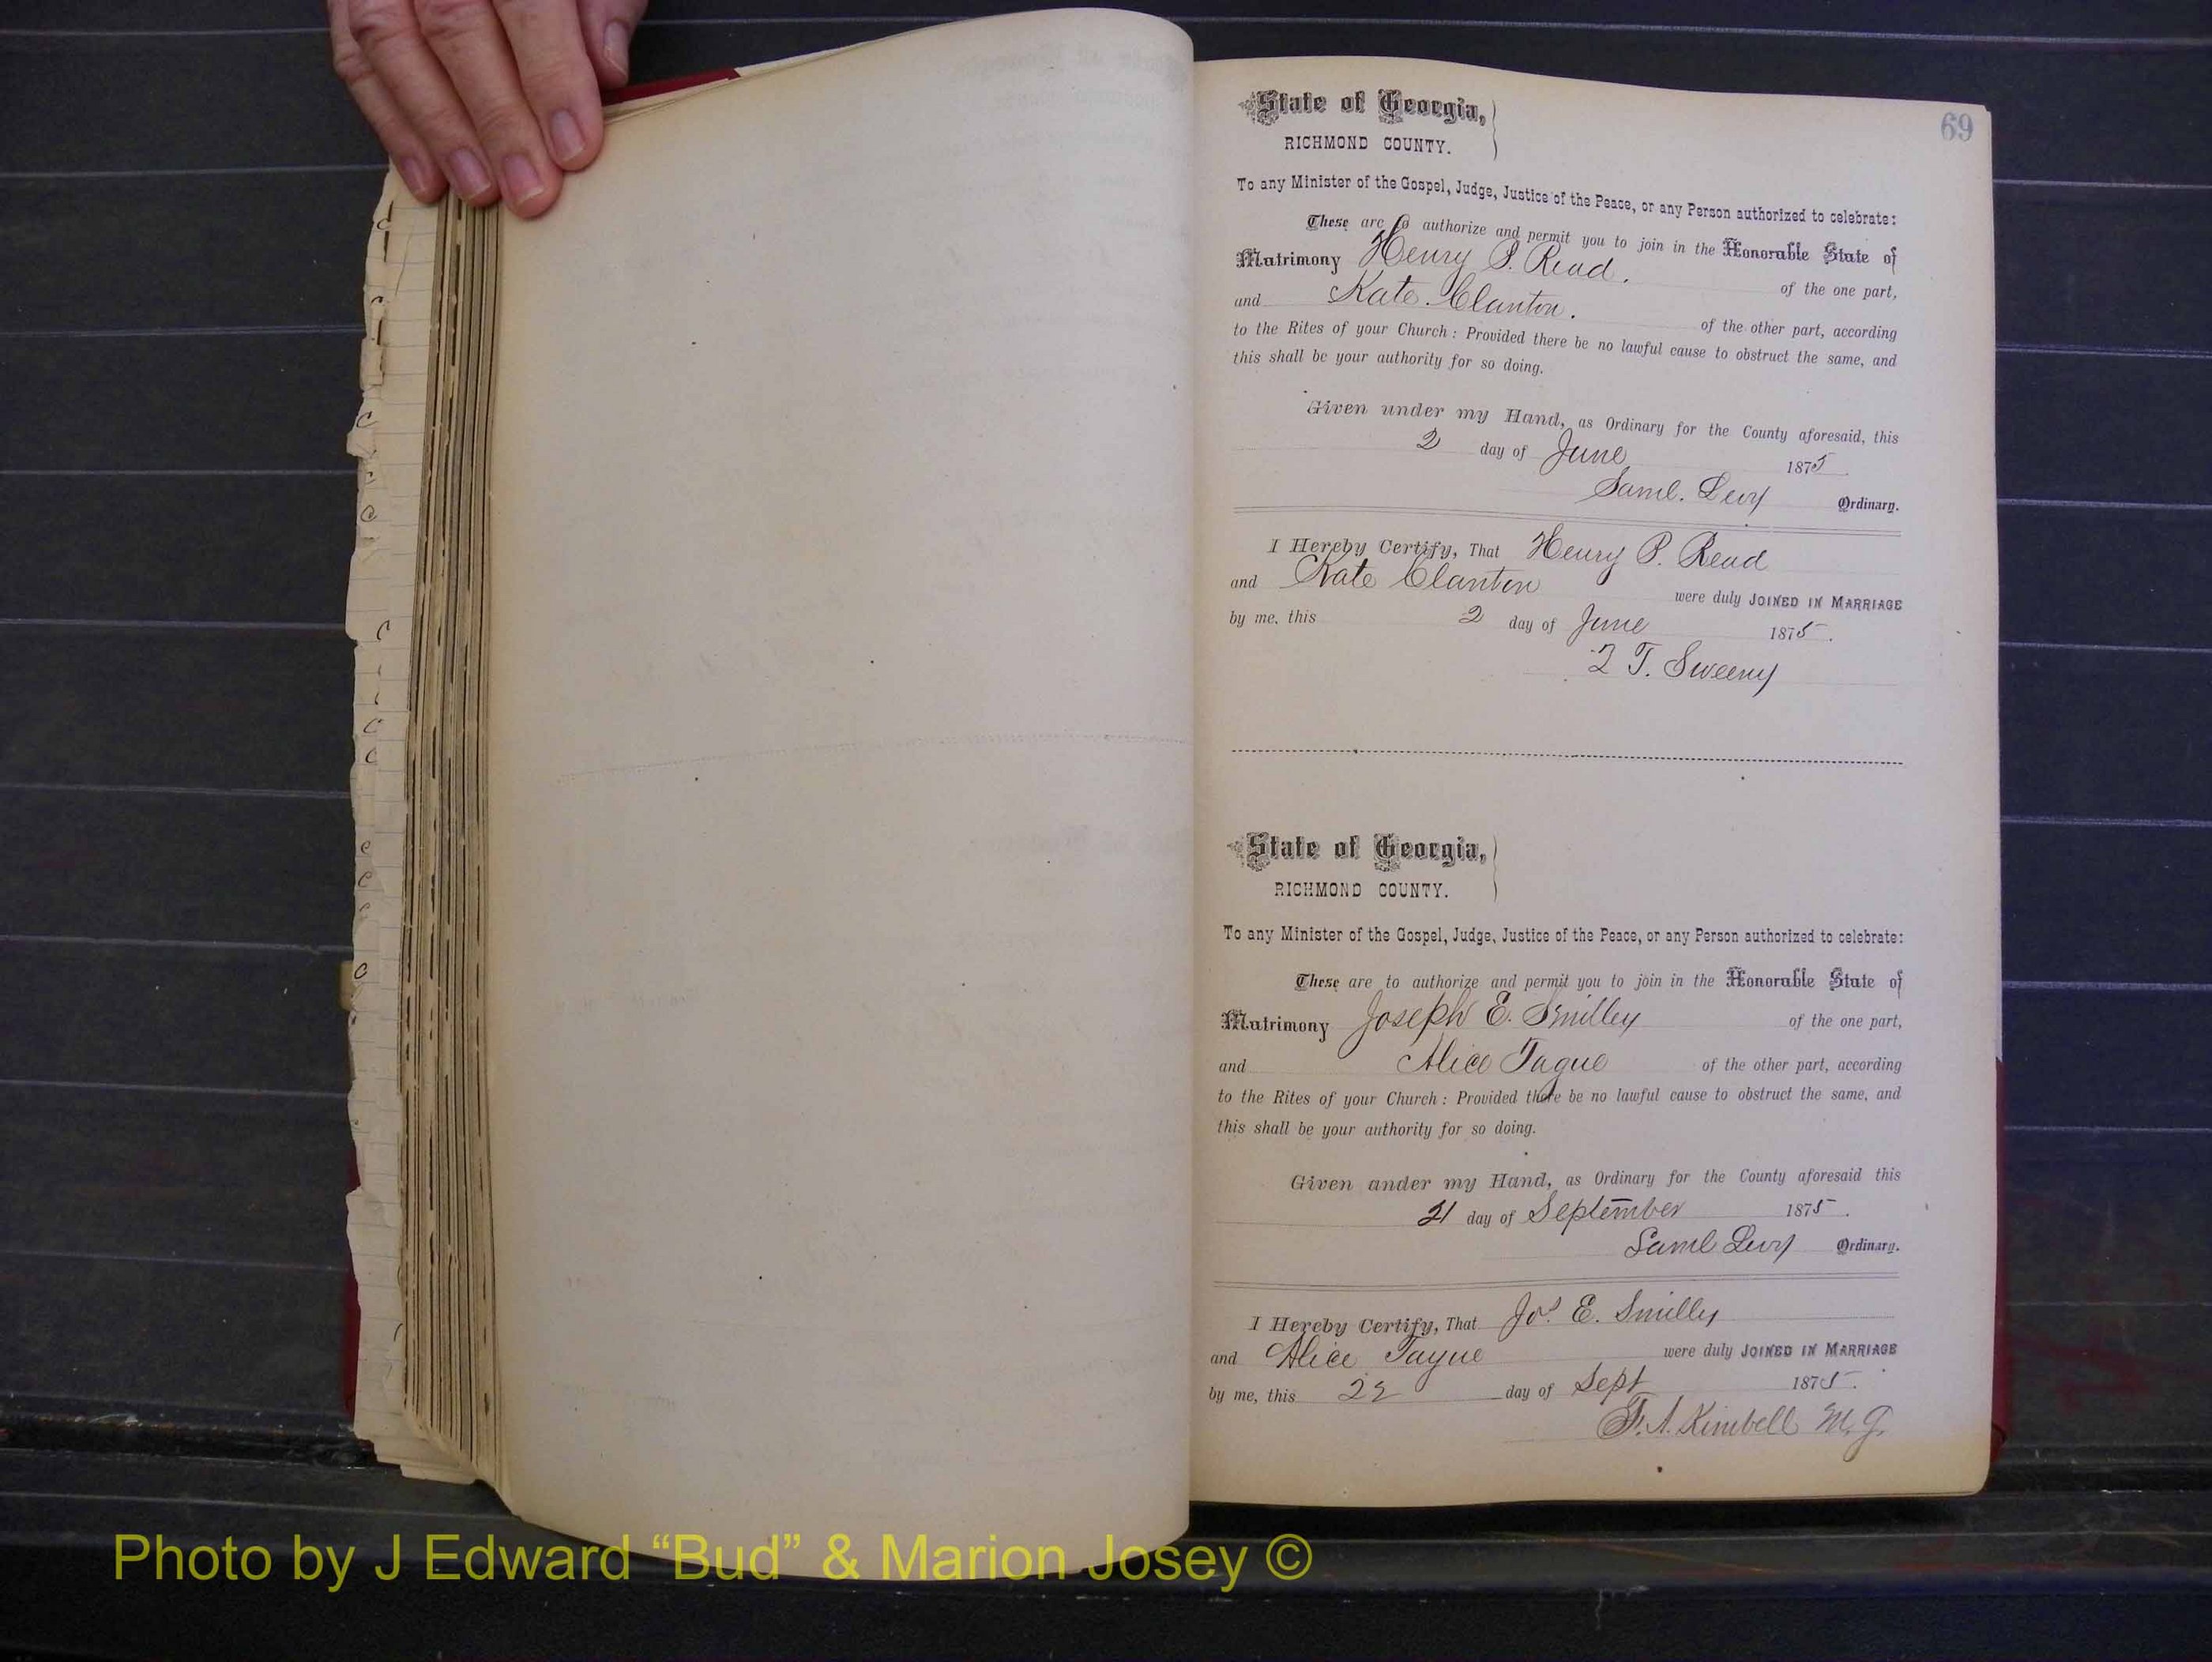 69
State of Georgia,
RICHMOND COUNTY.
To any Minister of the Gospel, Judge, Justice of the Peace, or any Person authorized to celebrate:
These are to authorize and permit you to join in the Honorable State of
Matrimony Henry P. Read. of the one part,
and Kate Clanton. of the other part, according
to the Rites of your Church: Provided there be no lawful cause to obstruct the same, and
this shall be your authority for so doing.
Given under my Hand, as Ordinary for the County aforesaid, this
2 day of June 1875
Saml. Levy Ordinary.
I Hereby Certify, That Henry P. Read
and Kate Clanton were duly JOINED IN MARRIAGE
by me, this 2 day of June 1875.
T. Sweeny
State of Georgia,
RICHMOND COUNTY.
To any Minister of the Gospel, Judge, Justice of the Peace, or any Person authorized to celebrate:
These are to authorize and permit you to join in the Honorable State of
Matrimony Joseph E. Smilley of the one part,
and Alice Tague of the other part, according
to the Rites of your Church: Provided there be no lawful cause to obstruct the same, and
this shall be your authority for so doing.
Given under my Hand, as Ordinary for the County aforesaid this
21 day of September 1875.
Saml Levy Ordinary.
I Hereby Certify, That Jos. E. Smilley
and Alice Tague were duly JOINED IN MARRIAGE
by me, this 22 day of Sept 1875.
F. A. Kimbell M. G.
Photo by J Edward “Bud” & Marion Josey ©